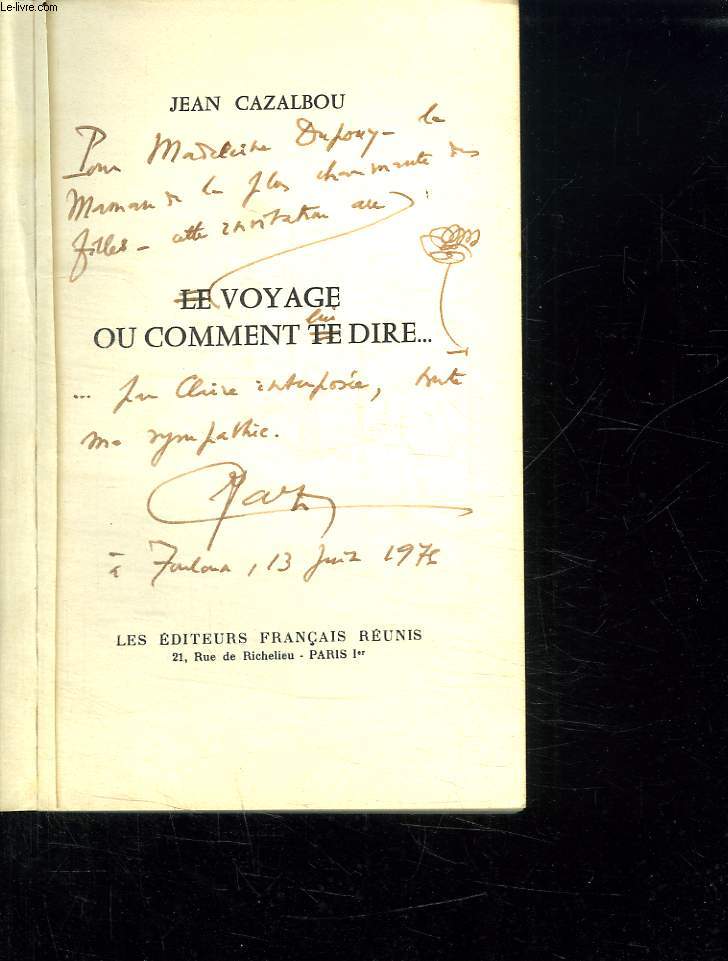 Le-livre.com
JEAN CAZALBOU
Pour Madeleine Dupouy - la
Maman de la plus charmante des
filles - cette invitation au
LE VOYAGE
lui
OU COMMENT TE DIRE...
... par Claire interposée, toute
ma sympathie.
à Toulouse, 13 Juin 1976
LES ÉDITEURS FRANÇAIS RÉUNIS
21, Rue de Richelieu - PARIS Ier